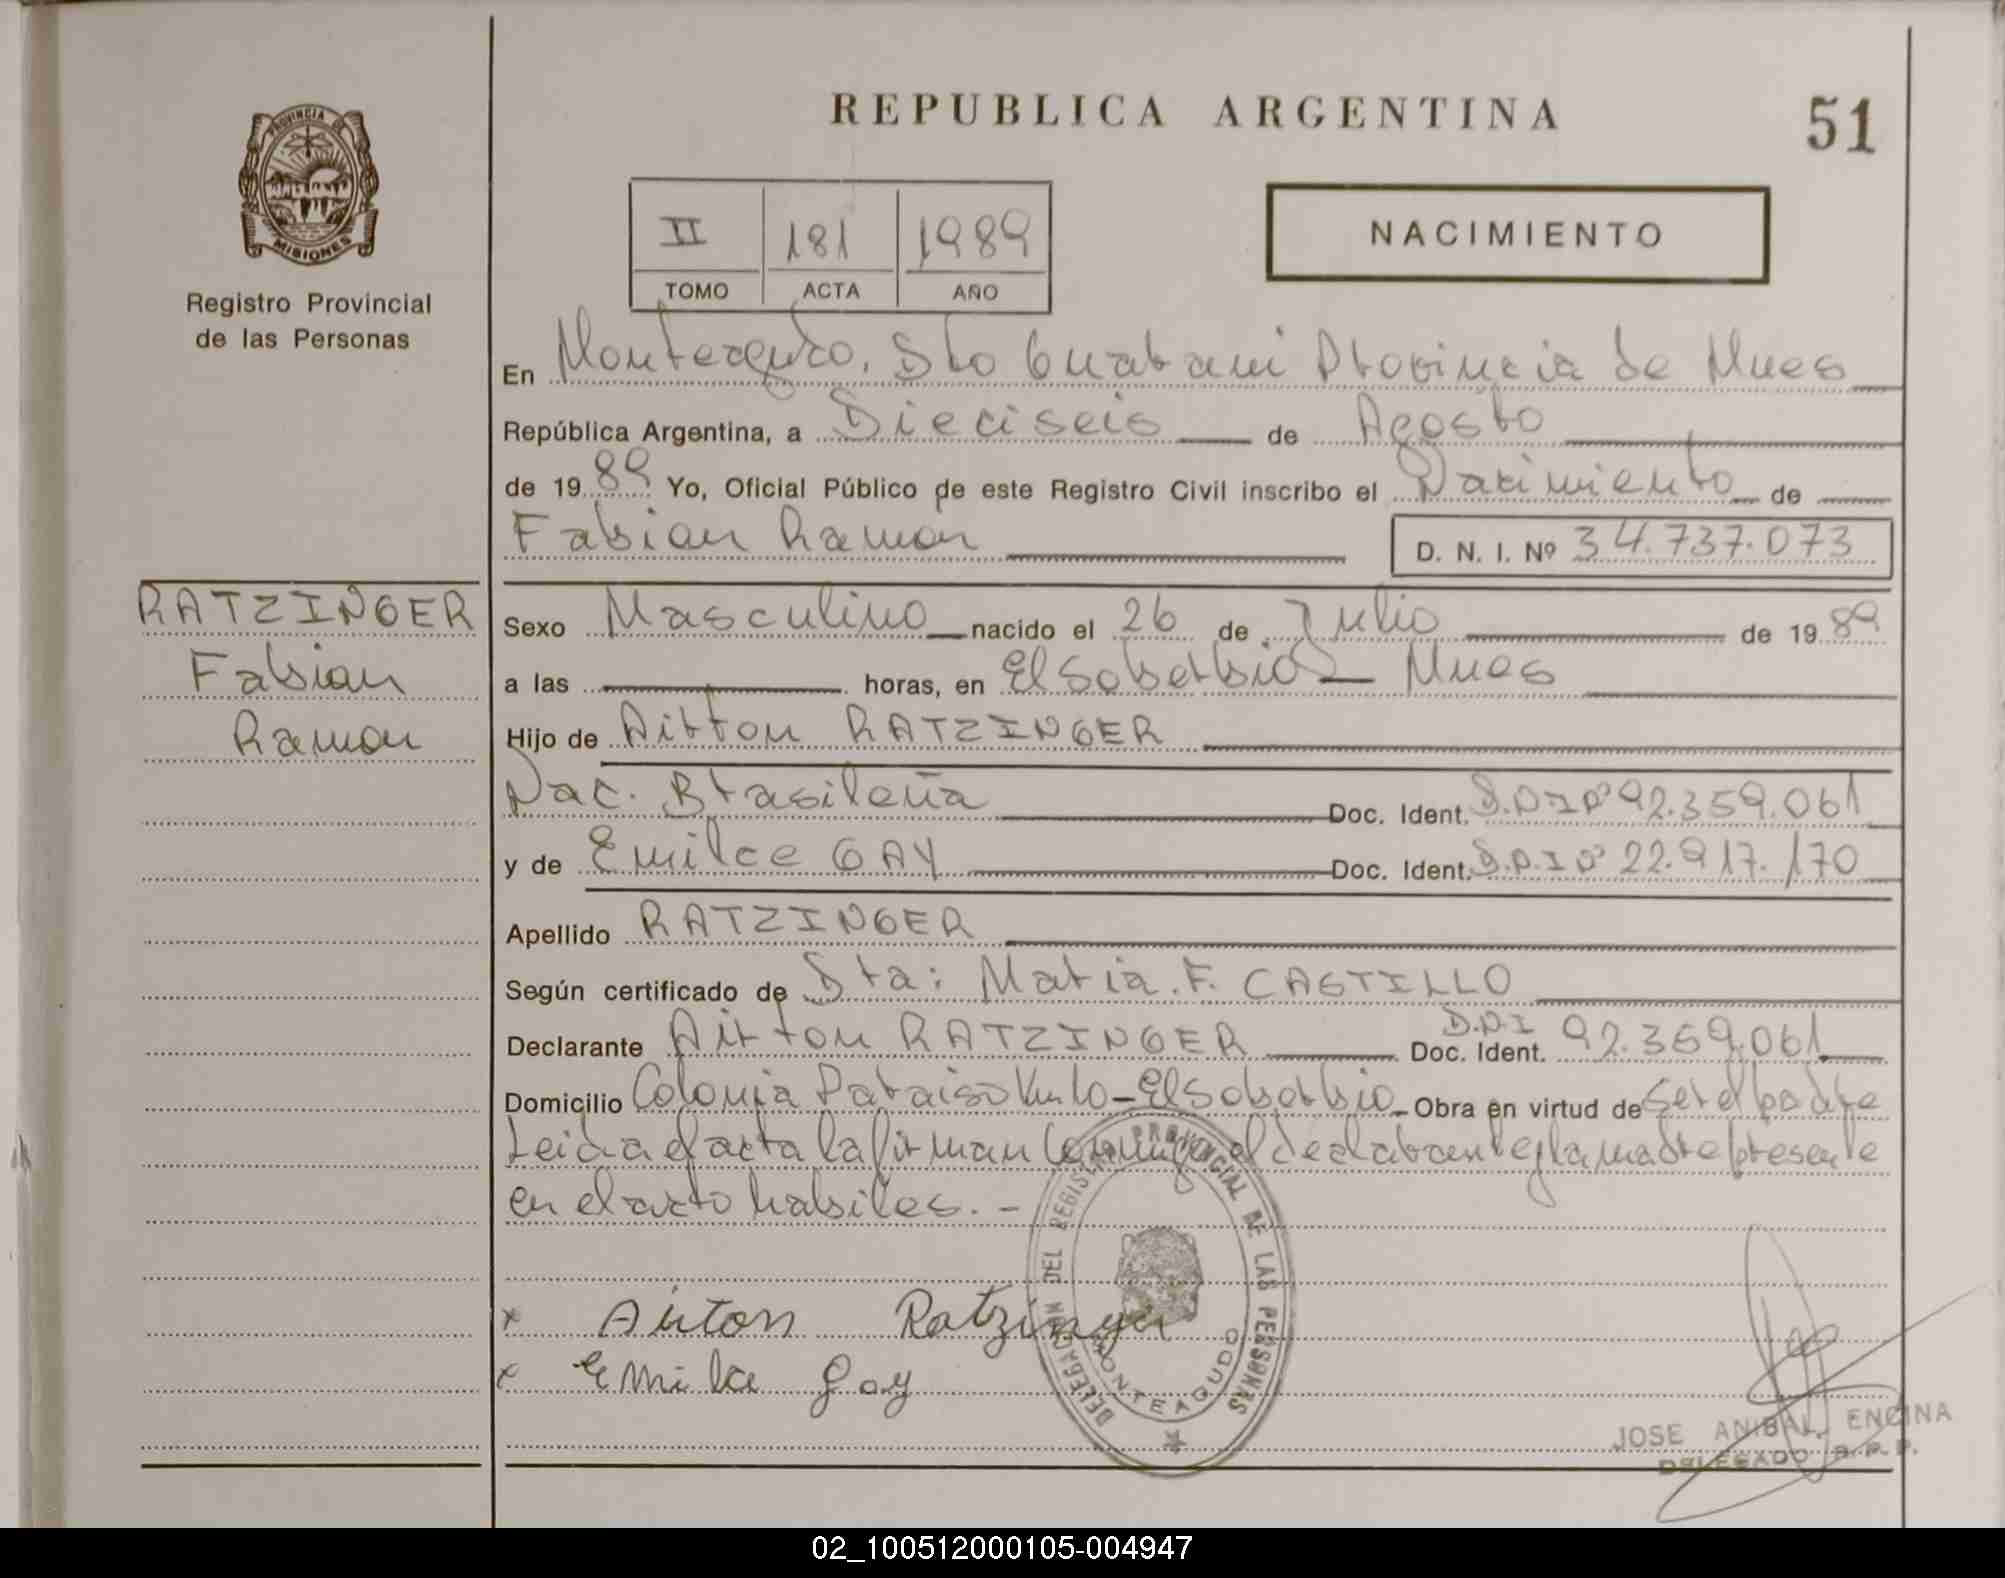 REPUBLICA ARGENTINA
51
PROVINCIA DE
MISIONES
Registro Provincial
de las Personas
II 181 1989
TOMO ACTA AÑO
NACIMIENTO
En Monteagudo, Dto Guarani Provincia de Mnes
República Argentina, a Dieciseis de Agosto
de 1989 Yo, Oficial Público de este Registro Civil inscribo el Nacimiento de
Fabian Ramon D. N. I. Nº 34.737.073
RATZINGER
Fabian
Ramon
Sexo Masculino nacido el 26 de Julio de 1989
a las horas, en El Soberbio - Mnes
Hijo de Airton RATZINGER
Nac. Brasileña Doc. Ident. D.N.I Nº 92.359.061
y de Emilce GAY Doc. Ident. D.N.I Nº 22.917.170
Apellido RATZINGER
Según certificado de Sta: Maria. F. CASTILLO
Declarante Airton RATZINGER Doc. Ident. D.N.I 92.359.061
Domicilio Colonia Paraiso - El Soberbio Obra en virtud de ser el padre
Leida el acta la firman conmigo el declarante y la madre presente
en el acto habiles. -
x Airton Ratzinger
x Emilce Gay
DELEGACION DEL REGISTRO PROVINCIAL DE LAS PERSONAS
MONTEAGUDO
JOSE ANIBAL ENCINA
DELEGADO R. P. P.
02_100512000105-004947